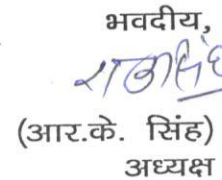 भवदीय,
(आर.के. सिंह)
अध्यक्ष